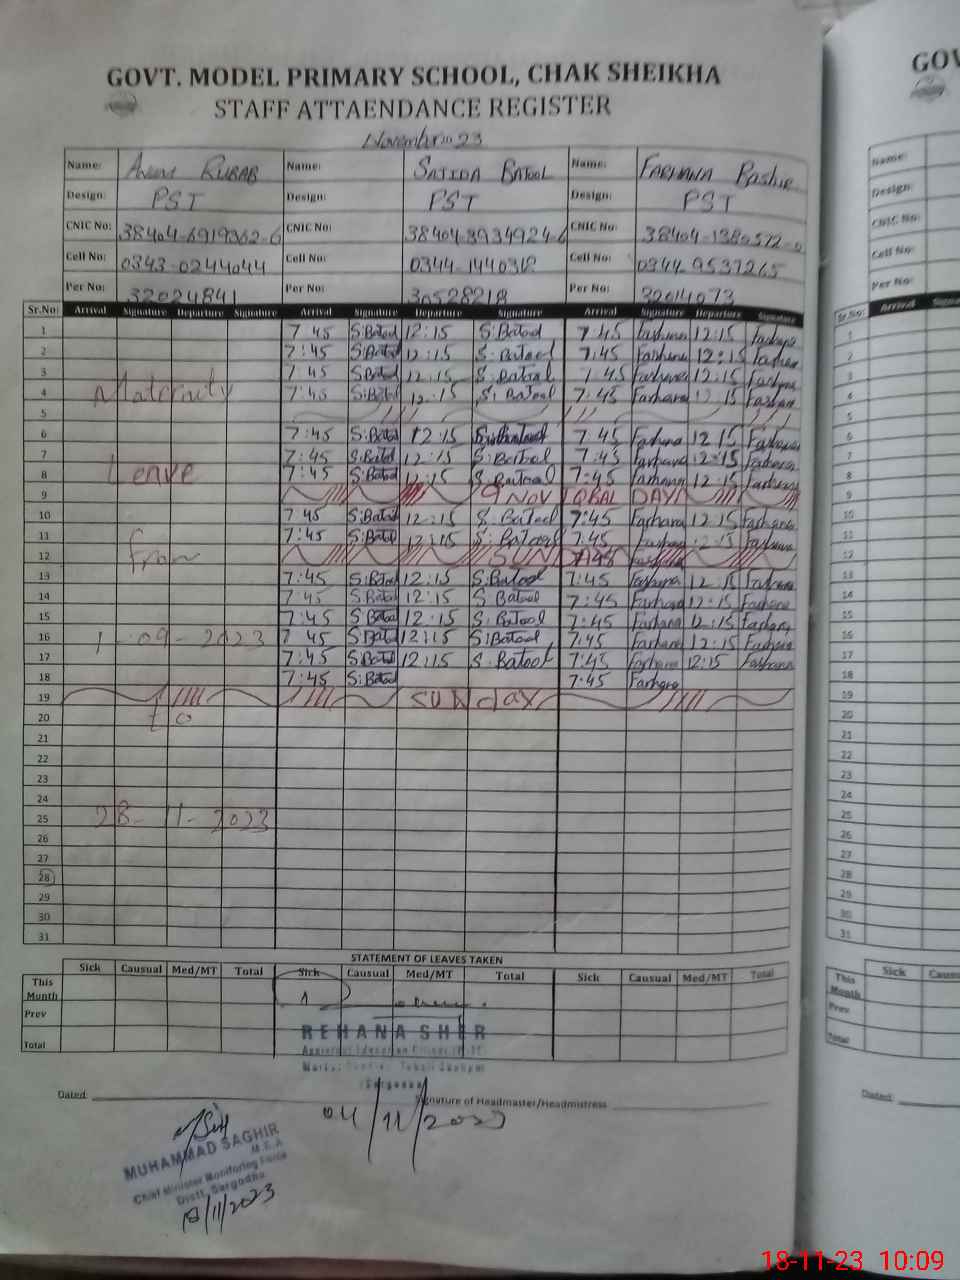 GOVT. MODEL PRIMARY SCHOOL, CHAK SHEIKHA
STAFF ATTAENDANCE REGISTER
November 23
Name: RUBAB Name: SAJIDA BATOOL Name: FARHANA Bashir
Design: PST Design: PST Design: PST
CNIC No: 38404-6919362-6 CNIC No: 38404-3934924-6 CNIC No:
Cell No: 0343-0244044 Cell No: Cell No: 0344-9537265
Per No: 32024841 Per No: 30528218 Per No: 32014073
Sr.No: Arrival Signature Departure Signature Arrival Signature Departure Signature Arrival Signature Departure Signature
1 7 45 S:Batool 12:15 S:Batool 7:45 Farhana 12:15 Farhana
2 7:45 S:Batool 12:15 S:Batool 7:45 Farhana 12:15 Farhana
3 7 45 S:Batool 12:15 S.Batool 7 45 Farhana 12:15 Farhana
4 Maternity 7:45 S:Batool 12:15 S: Batool 7:45 Farhana 12:15 Farhana
5
6 7:45 S:Batool 12:15 7 45 Farhana 12 15 Farhana
7 7:45 S:Batool 12:15 S:Batool 7:45 Farhana 12:15 Farhana
8 Leave 7:45 S:Batool 12:15 S.Batool 7:45 Farhana 12:15 Farhana
9 9 NOV IQBAL DAY
10 7 45 S:Batool 12:15 S.Batool 7:45 Farhana 12:15 Farhana
11 7:45 S:Batool 12:15 S.Batool 7:45 Farhana 12:15 Farhana
12 from SUN
13 7:45 S:Batool 12:15 S:Batool 7:45 Farhana 12:15 Farhana
14 7:45 S:Batool 12:15 S Batool 7:45 Farhana 12:15 Farhana
15 7:45 S:Batool 12:15 S:Batool 7:45 Farhana 12:15 Farhana
16 1-09-2023 7 45 S:Batool 12:15 S:Batool 7:45 Farhana 12:15 Farhana
17 7:45 S:Batool 12:15 S.Batool 7:45 Farhana 12:15 Farhana
18 7:45 S:Batool 7:45 Farhana
19 SUNday
20 to
21
22
23
24
25 28-11-2023
26
27
28
29
30
31
STATEMENT OF LEAVES TAKEN
Sick Causual Med/MT Total Sick Causual Med/MT Total Sick Causual Med/MT Total
This Month
Prev
Total
REHANA SHER
Sargodha
Dated: Signature of Headmaster/Headmistress
04/11/2023
MUHAMMAD SAGHIR
M.E.A
Chief Minister Monitoring Force
Distt. Sargodha
18/11/2023
GOV
Name:
Design:
CNIC No:
Cell No:
Per No:
Sr.No: Arrival
1
2
3
4
5
6
7
8
9
10
11
12
13
14
15
16
17
18
19
20
21
22
23
24
25
26
27
28
29
30
31
Sick
This Month
Prev
Total
Dated:
18-11-23 10:09